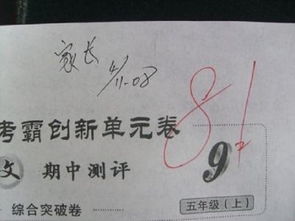 家长
11.08
81
考霸创新单元卷
文 期中测评 92
综合突破卷 五年级(上)